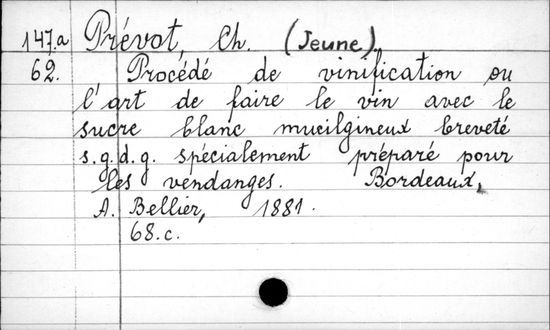 147.a Prévot, Ch. (Jeune).
62. Procédé de vinification ou
l'art de faire le vin avec le
sucre blanc mucilgineux breveté
s.g.d.g. spécialement préparé pour
les vendanges. Bordeaux,
A. Bellier, 1881.
68.c.